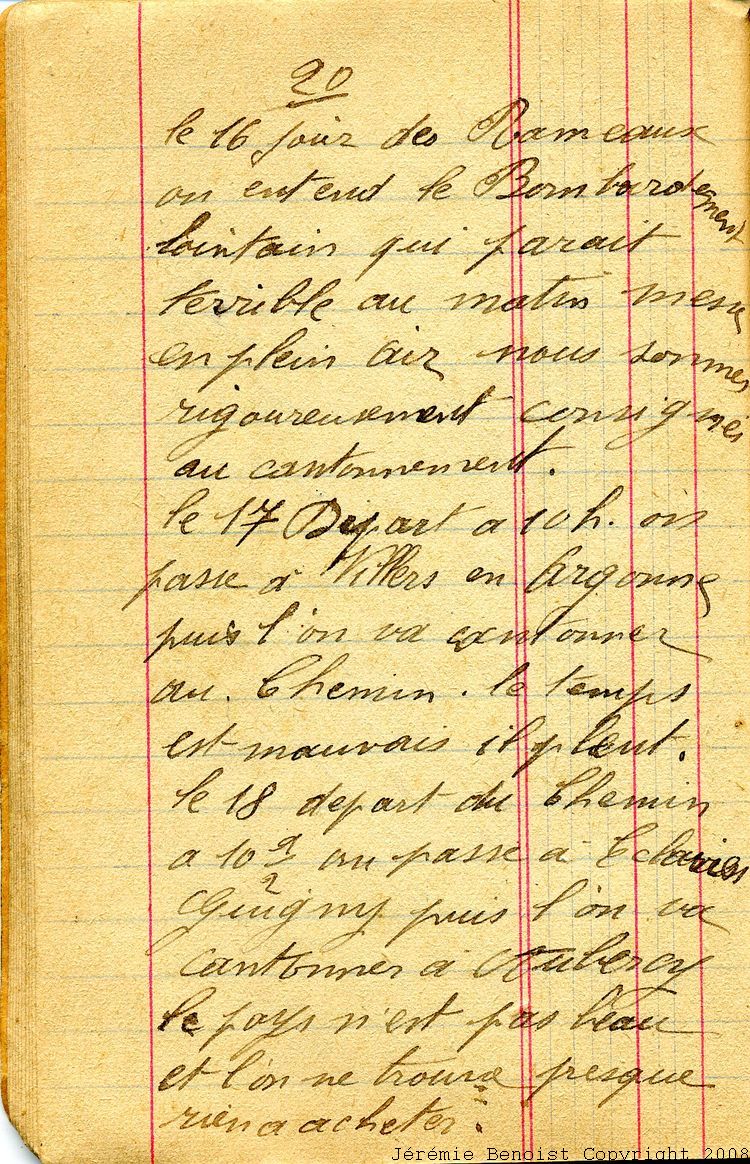 20
le 16 jour des Rameaux
on entend le Bombardement
lointain qui parait
terrible au matin messe
en plein air nous sommes
rigoureusement consignés
au cantonnement.
le 17 Depart a 10h. on
passe à Villers en Argonne
puis l'on va cantonner
au. Chemin. le temps
est mauvais il pleut.
le 18 depart du Chemin
a 10 1/2 on passe à Eclaires
puis l'on va
cantonner à Aubercy
le pays n'est pas beau
et l'on ne trouve presque
rien a acheter.
Jérémie Benoist Copyright 2008